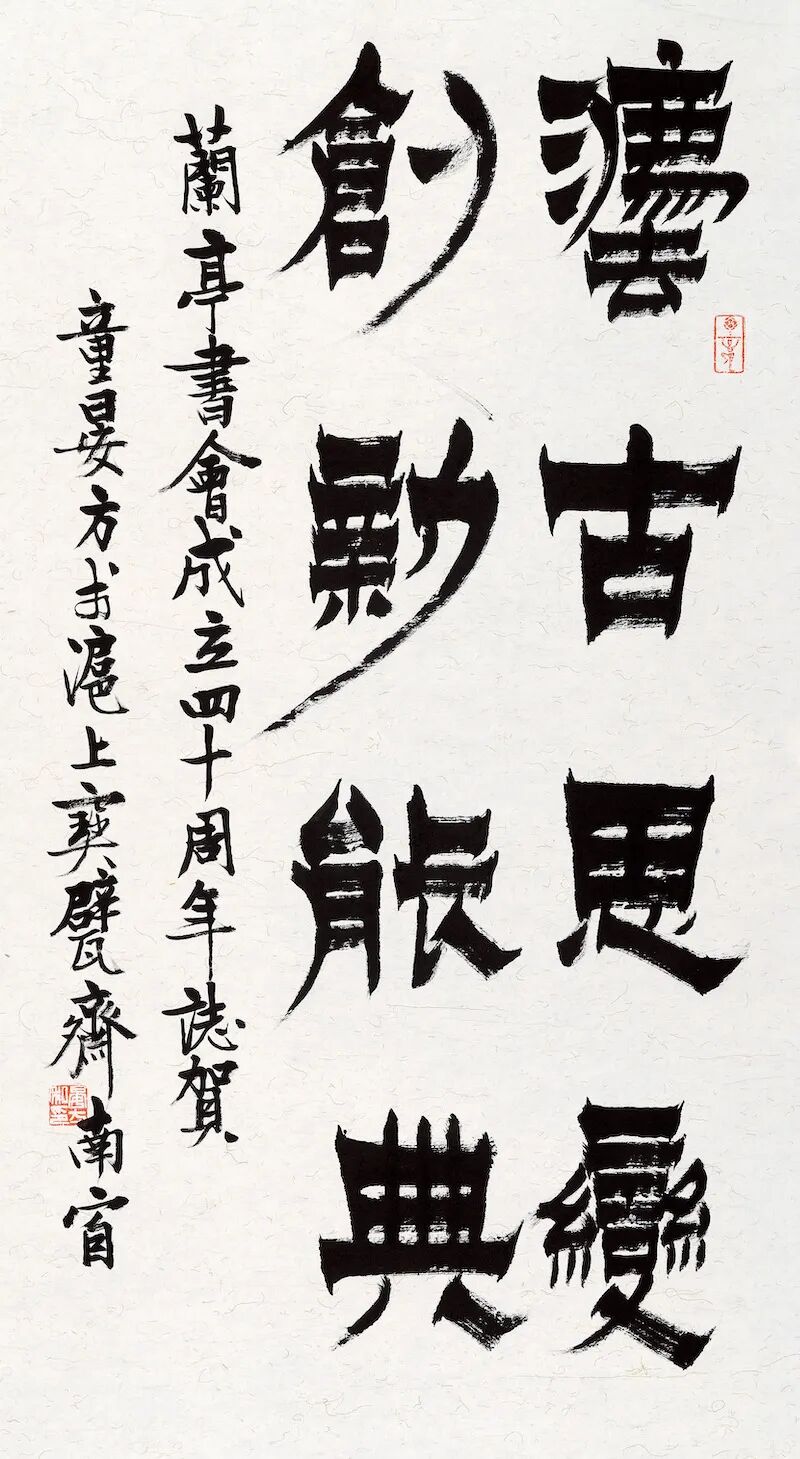 灋古思變
創能典
蘭亭書會成立四十周年誌賀
童晏方於滬上寶甓齋南窗